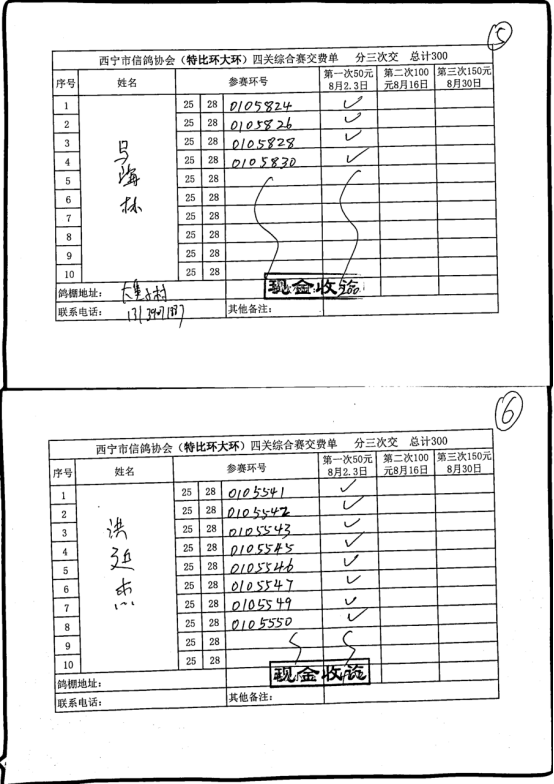 5
西宁市信鸽协会（特比环大环）四关综合赛交费单 分三次交 总计300
序号 姓名 参赛环号 第一次50元8月2.3日 第二次100元8月16日 第三次150元8月30日
马海林
1 25 28 0105824 ✓
2 25 28 0105826 ✓
3 25 28 0105828 ✓
4 25 28 0105830 ✓
5 25 28
6 25 28
7 25 28
8 25 28
9 25 28
10 25 28
现金收讫
鸽棚地址：
联系电话： 其他备注：
6
西宁市信鸽协会（特比环大环）四关综合赛交费单 分三次交 总计300
序号 姓名 参赛环号 第一次50元8月2.3日 第二次100元8月16日 第三次150元8月30日
洪延杰
1 25 28 0105541 ✓
2 25 28 0105542 ✓
3 25 28 0105543 ✓
4 25 28 0105545 ✓
5 25 28 0105546 ✓
6 25 28 0105547 ✓
7 25 28 0105549 ✓
8 25 28 0105550 ✓
9 25 28
10 25 28
现金收讫
鸽棚地址：
联系电话： 其他备注：